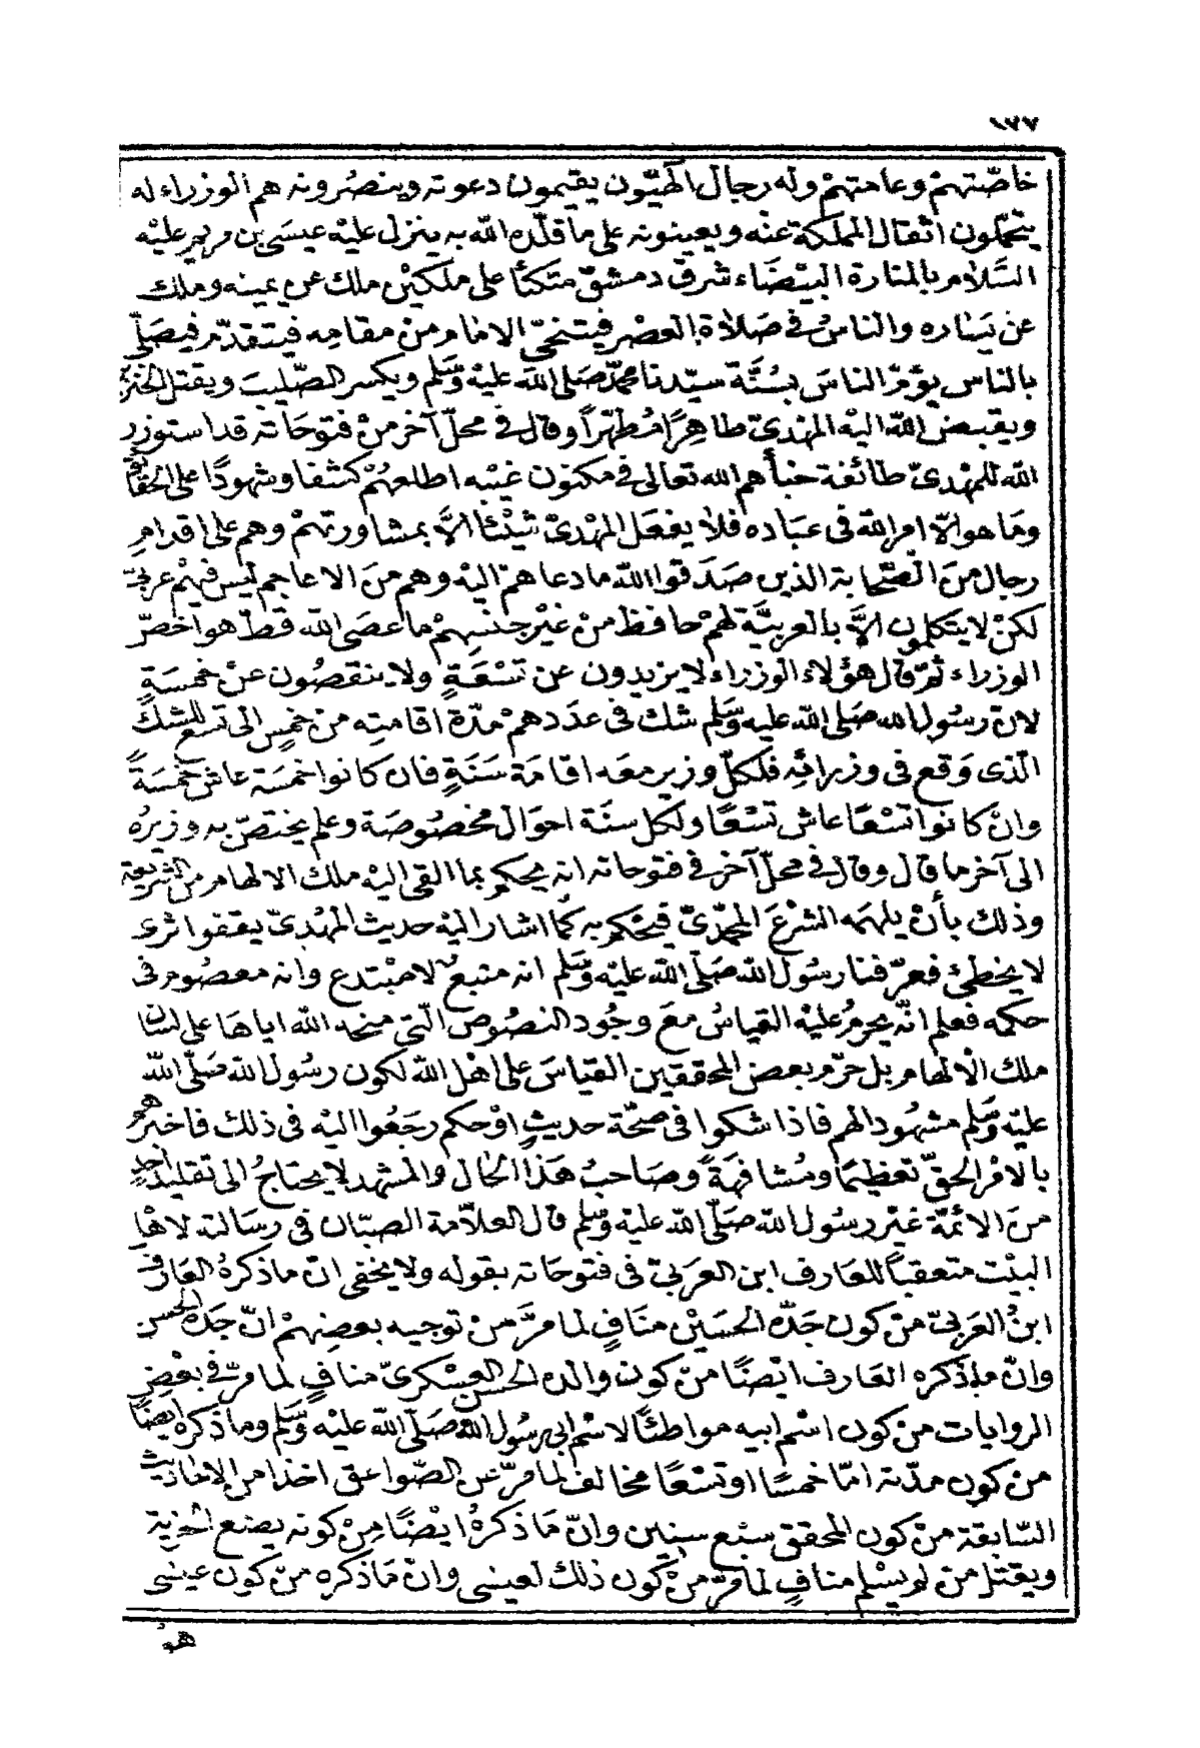 ١٧٧
خاصّتهمْ وعامتهمْ وله رجال الٰهيّون يقيمون دعوته وينصُرونه هم الوزراء له
يتحمّلون اثقال المملكة عنْه ويعينونه على ما قلّده الله به ينزل عليْه عيسَى بن مريم عليْه
السَّلام بالمنارة البيْضَاء شرقى دمشقّ متكئا على ملكيْن ملك عن يمينه وملك
عن يسَاره والناسُ فى صَلاة العصْر فيتنحّى الامام منْ مقامه فيتقدّم فيصَلّى
بالناس يؤمّ الناسَ بسُنَّة سيّدنا محمّد صَلى الله عليْه وسَلم ويكسر الصّليبَ ويقتل الخنزير
ويقبض الله اليْه المهْدىّ طاهِرًا مُطهّراً وقال فى محلّ آخر منْ فتوحاته قد استوزر
الله للمهْدىّ طائفة خبأهم الله تعالى فى مكنون غيْبه اطلعهُمْ كشفا وشهودًا على الحقائق
ومَا هو الاّ امر الله فى عبَاده فلا يفعَل المهْدىّ شيْئا الاَّ بمشاورتهمْ وهم على اقدامِ
رجال منَ الصّحابة الذين صَدَقوا الله ما دعاهمْ اليْه وهم منَ الاعاجم ليْس فيهمْ عربىّ
لكنْ لا يتكلمون الاَّ بالعربيَّة لهمْ حافظ منْ غيْر جنْسهِمْ ما عصَى الله قطّ هو اخصّ
الوزراء ثمّ قال هؤلاء الوزراء لا يزيدون عن تسْعَةٍ ولا ينقصُون عنْ خمْسَةٍ
لانّ رسُول الله صَلى الله عليه وسَلم شك فى عدَدهمْ مدّة اقامتِه من خمسٍ الى تسعٍ للشك
الّذى وَقع فى وزرائِه فلكلّ وزير معَه اقامَة سَنَةٍ فان كانوا خمْسَة عاش خمْسَةً
وانْ كانوا تسْعًا عاش تسْعًا ولكل سنَة احوَال مخصُوصَة وعلم يختصّ به وزيرُه
الى آخر ما قال وقال فى محلّ آخر فى فتوحاته انه يحكم بما القى اليْه ملك الالهام من الشريعة
وذلك بأنْ يلهمَه الشرْعَ المحمّدىّ فيحْكم به كمَا اشار اليْه حديث المهْدىّ يقفوا ثرى
لا يخطئ فعرّفنا رسُول الله صَلّى الله عليْه وَسَلم انه متبعٌ لا مبْتدع وانه معصُوم فى
حكمه فعلم انّه يحرمُ عليْه القياسُ معَ وجُود النصُوص الّتى منحَه الله اياهَا على لسَان
ملك الالْهام بل حرّم بعض المحققين القياسَ على اهْل الله لكون رسُول الله صَلّى الله
عليْه وَسَلم مشهُود الهم فاذا شكوا فى صحّة حديثٍ اوْ حكم رجَعُوا اليْه فى ذلك فاخبرهُمْ
بالامْر الحقّ تعظيمًا ومُشافهَةً وصَاحبُ هَذا الحَال والمشهد لا يحتاجُ الى تقليد احدٍ
منَ الائمّة غيْر رسُول الله صَلّى الله عليْه وسَلم قال العلاّمة الصبّان فى رسَالته لاهْل
البيْت متعقباً للعَارف ابن العرَبىّ فى فتوحاته بقوله ولا يخفى انّ ما ذكرهُ العَارف
ابنُ العَربىّ منْ كون جَدّه الحسَيْن منَافٍ لما مرَّ منْ توجيه بعضِهمْ انّ جَدّه الحسن
وانّ ما ذكره العَارف ايْضًا منْ كون والده الحسن العسْكرىّ منافٍ لما مرّ فى بعْضِ
الروايات منْ كون اسْم ابيه مواطئًا لاسْم ابى رسُول الله صَلّى الله عليْه وسَلم وما ذكره ايضًا
من كون مدّته امّا خمسًا او تسْعًا مخالف لما مرّ عن الصّواعق اخذا من الاحَاديث
السّابقة منْ كون المحقق سبْع سنين وانّ مَا ذكرهُ ايْضًا منْ كونه يضع الجزية
ويقتل منْ لم يسْلم منافٍ لما مرّ منْ كون ذلك لعيسى وانّ مَا ذكره منْ كون عيسى
هوُ